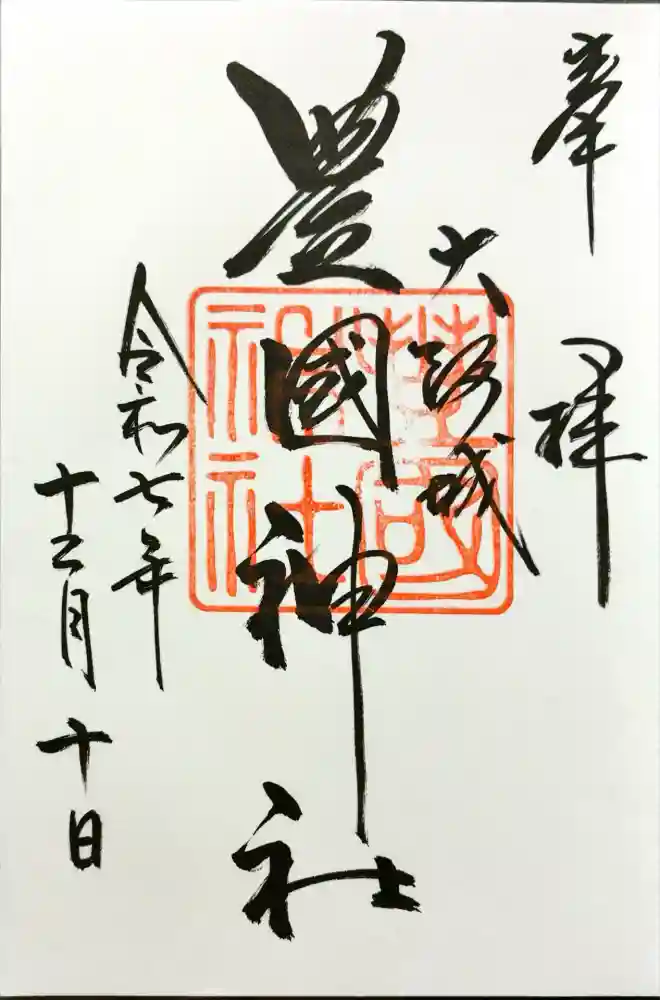 奉拝
大阪城
豊國神社
豐國神社
令和七年
十二月十日